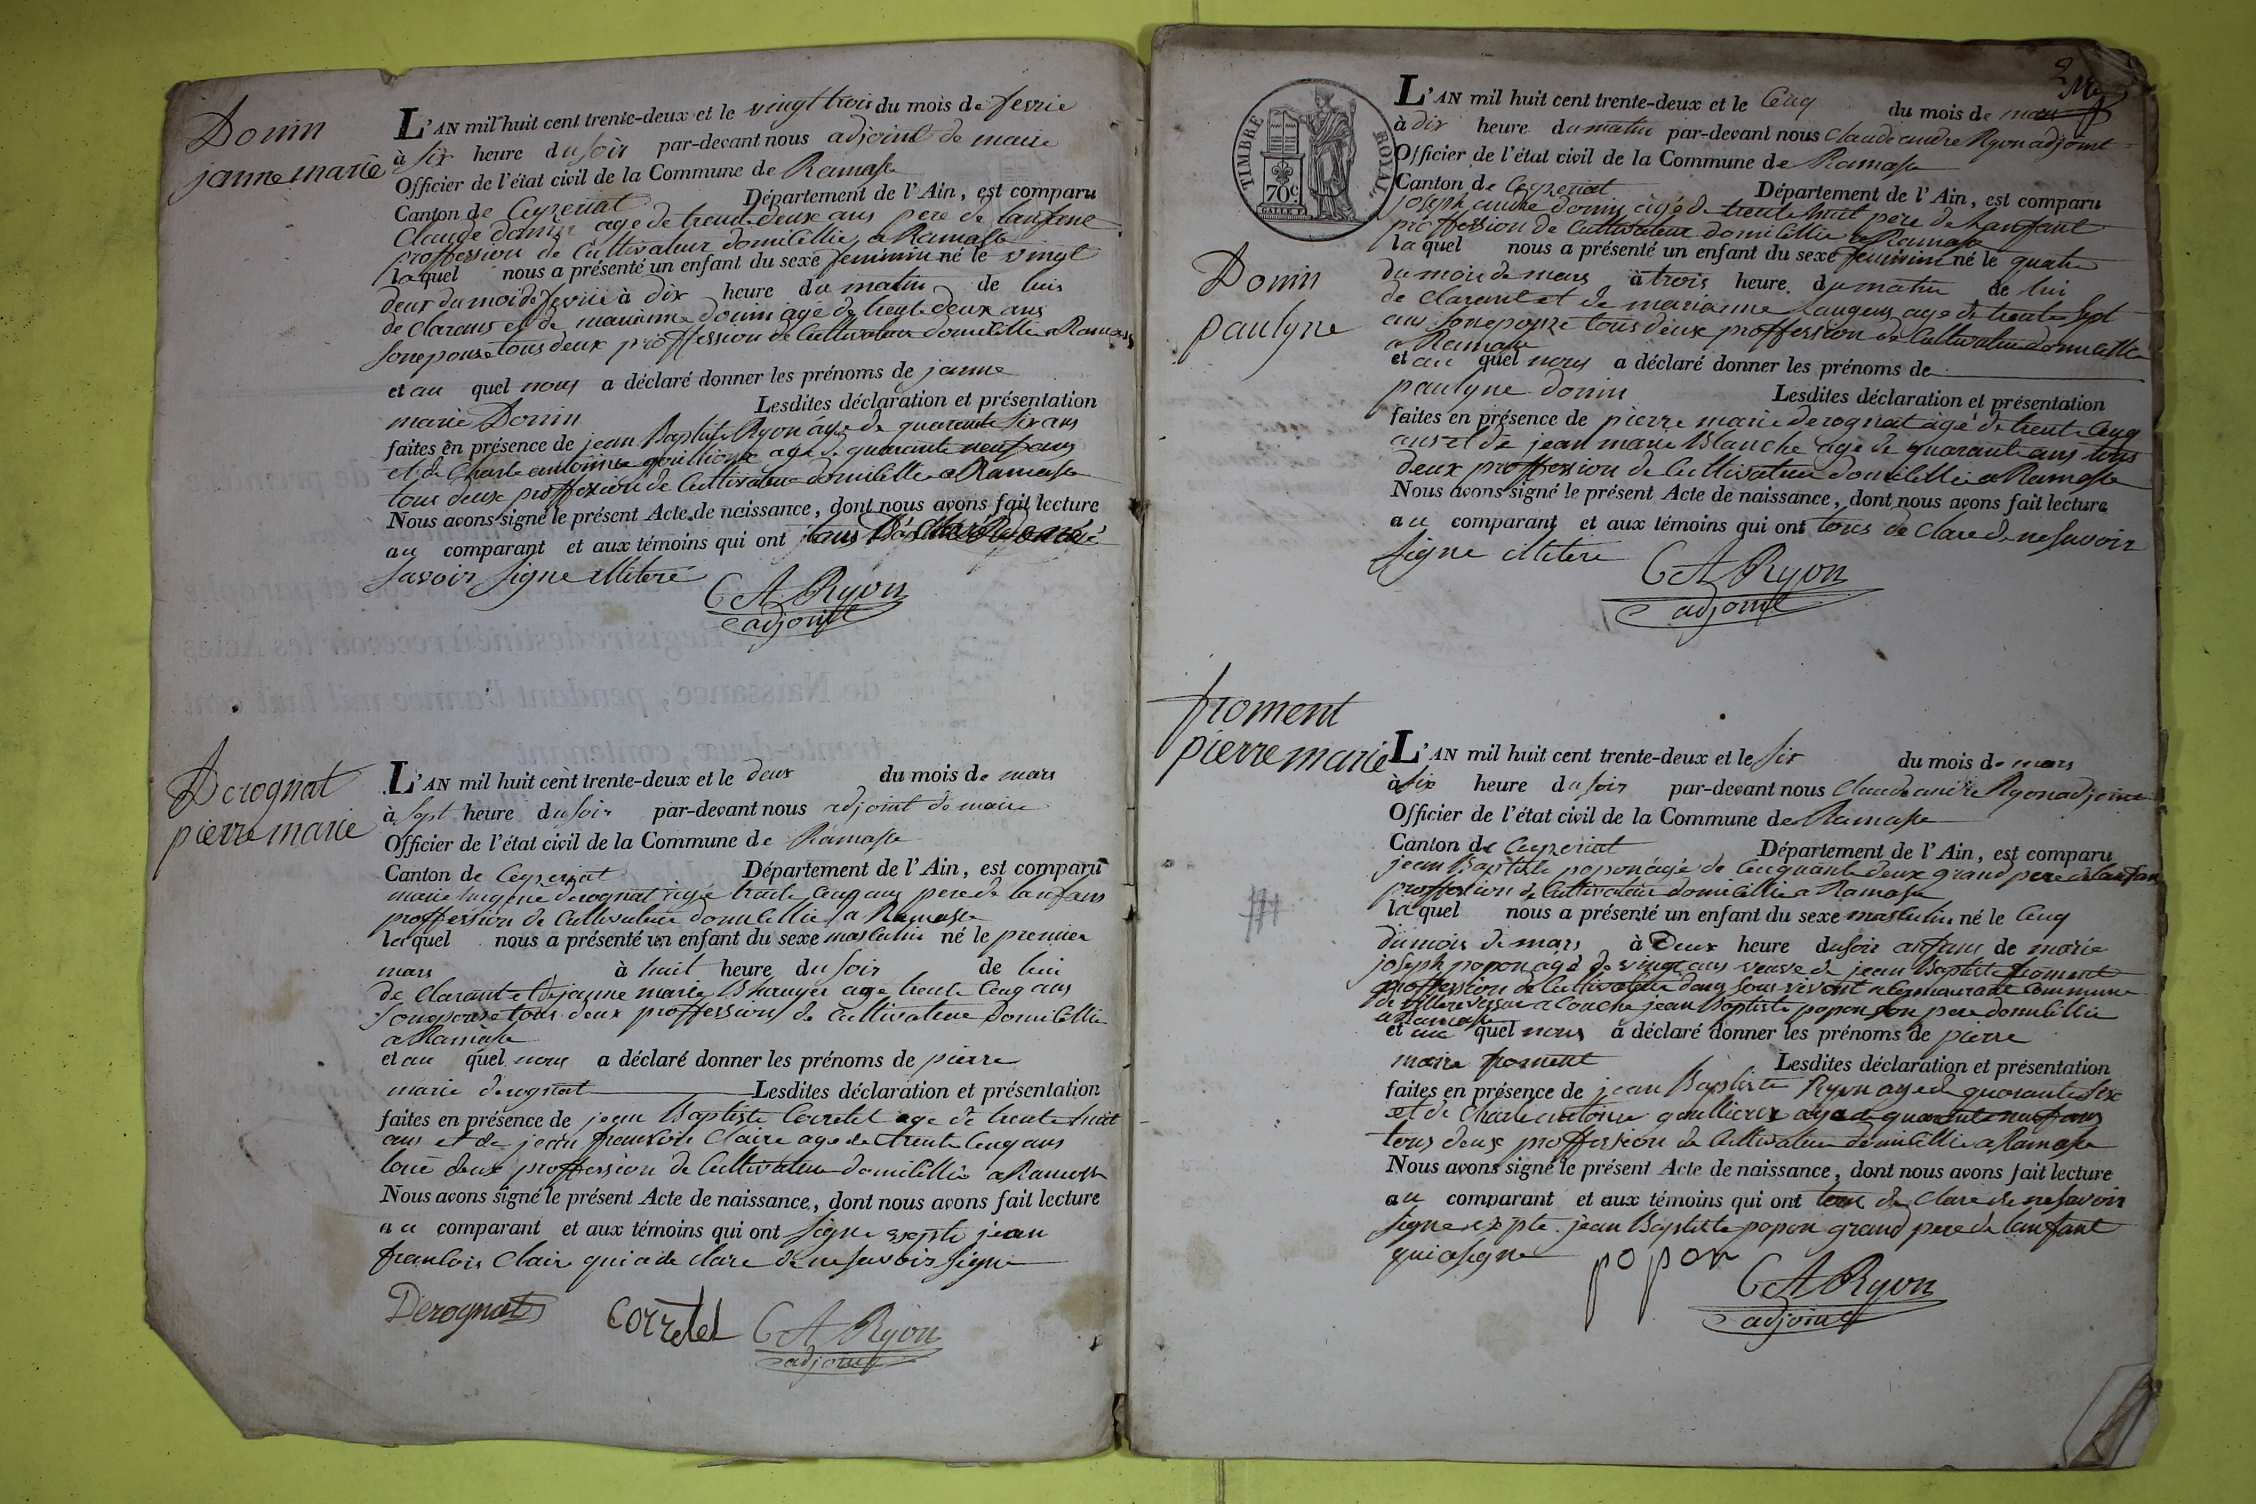 Donin
janne marie
L'AN mil huit cent trente-deux et le vingt trois du mois de fevrie
à six heure du soir par-devant nous adjoint de maire
Officier de l'état civil de la Commune de Ramasse
Canton de Ceyzeriat Département de l'Ain, est comparu
Claude donin age de trente deux ans pere de lanfant
proffession de Cultivateur domicillie a Ramasse
laquel nous a présenté un enfant du sexe feminin né le vingt
deux du mois de fevrie à dix heure du matin de lui
de clarans et de marianne donin agé de trente deux ans
son epouse tous deux proffession de Cultivateur domicillie a Ramasse
et au quel nous a déclaré donner les prénoms de janne
marie Donin Lesdites déclaration et présentation
faites en présence de jean Baptiste Ryon âgé de quarante six ans
et de Charle antoinne age de quarante neuf ans
tous deux proffession de Cultivateur domicillie a Ramasse
Nous avons signé le présent Acte de naissance, dont nous avons fait lecture
au comparant et aux témoins qui ont tous
savoir signe
C A Ryon
adjoint
Derognat
pierre marie
L'AN mil huit cent trente-deux et le deux du mois de mars
à sept heure du soir par-devant nous adjoint de maire
Officier de l'état civil de la Commune de Ramasse
Canton de Ceyzeriat Département de l'Ain, est comparu
marie derognat agé trente cenq ans pere de lanfans
proffession de Cultivateur domicillie a Ramasse
laquel nous a présenté un enfant du sexe masculin né le premier
mars à huit heure du soir de lui
de clarant et de janne marie age trente cenq ans
son epouse tous deux proffession de Cultivateur domicillie
a Ramasse
et au quel nous a déclaré donner les prénoms de pierre
marie derognat Lesdites déclaration et présentation
faites en présence de jean Baptiste Corretel age de trente huit
ans et de jean francois Claire age de trente cenq ans
tous deux proffession de Cultivateur domicillie a Ramasse
Nous avons signé le présent Acte de naissance, dont nous avons fait lecture
au comparant et aux témoins qui ont signe jean
francois Clair qui a de clare de ne savoir signe
Derognat Corretel C A Ryon
adjoint
2
TIMBRE ROYAL
70 c.
L'AN mil huit cent trente-deux et le Cenq du mois de mars
à dix heure du matin par-devant nous Claude andre Ryon adjoint
Officier de l'état civil de la Commune de Ramasse
Canton de Ceyzeriat Département de l'Ain, est comparu
joseph andre donin agé de trente huit pere de lanfant
proffession de Cultivateur domicillie a Ramasse
laquel nous a présenté un enfant du sexe feminin né le quatre
Donin
paulyne
du mois de mars à trois heure du matin de lui
de clarant et de marianne age de trente sept
ans son epouze tous deux proffession de Cultivateur domicillie
a Ramasse
et au quel nous a déclaré donner les prénoms de
paulyne donin Lesdites déclaration et présentation
faites en présence de pierre marie derognat agé de trente Cenq
ans et de jean marie Blanche age de quarante ans tous
deux proffession de Cultivateur domicillie a Ramasse
Nous avons signé le présent Acte de naissance, dont nous avons fait lecture
au comparant et aux témoins qui ont tous de clare de ne savoir
signe
C A Ryon
adjoint
froment
pierre marie
L'AN mil huit cent trente-deux et le six du mois de mars
à six heure du soir par-devant nous Claude andre Ryon adjoint
Officier de l'état civil de la Commune de Ramasse
Canton de Ceyzeriat Département de l'Ain, est comparu
jean Baptiste popon âgé de Cenquante deux grand pere de lanfan
proffession de Cultivateur domicillie a Ramasse
laquel nous a présenté un enfant du sexe masculin né le Cenq
du mois de mars à Deux heure du soir de marie
joseph popon agé de vingt ans veuve de jean Baptiste froment
proffession de Cultivateur dans sons vivant commune
de a couche jean Baptiste popon son pere domicillie
a Ramasse
et au quel nous a déclaré donner les prénoms de pierre
marie froment Lesdites déclaration et présentation
faites en présence de jean Baptiste Ryon age de quarante six
et de Charle antoine age de quarante neuf ans
tous deux proffession de Cultivateur domicillie a Ramasse
Nous avons signé le présent Acte de naissance, dont nous avons fait lecture
au comparant et aux témoins qui ont tous de clare de ne savoir
signe jean Baptiste popon grand pere de lanfant
qui a signe popon
C A Ryon
adjoint